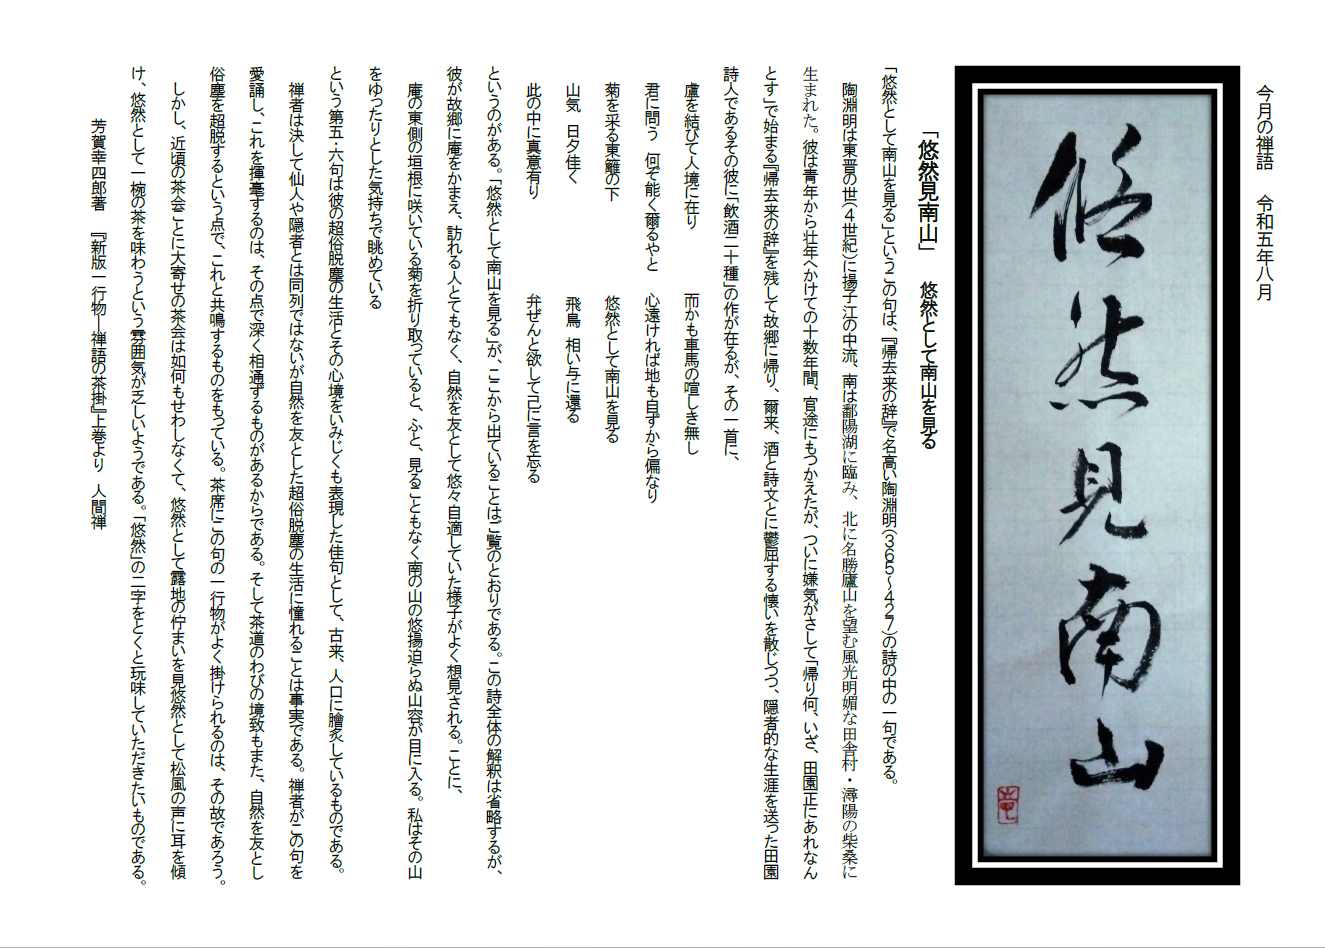 今月の禅語　令和五年八月
悠然見南山
「悠然見南山」　悠然として南山を見る
「悠然として南山を見る」というこの句は、『帰去来の辞』で名高い陶淵明(365～427)の詩の中の一句である。
陶淵明は東晋の世(4世紀)に揚子江の中流、南は鄱陽湖に臨み、北に名勝廬山を望む風光明媚な田舎村・潯陽の柴桑に
生まれた。彼は青年から壮年へかけての十数年間、官途にもつかえたが、ついに嫌気がさして「帰り何、いざ、田園正にあれなん
とす」で始まる『帰去来の辞』を残して故郷に帰り、爾来、酒と詩文とに鬱屈する懐いを散じつつ、隠者的な生涯を送った田園
詩人であるその彼に「飲酒二十種」の作が在るが、その一首に、
盧を結びて人境に在り　而かも車馬の喧しき無し
君に問う　何ぞ能く爾るやと　心遠ければ地も自ずから偏なり
菊を采る東籬の下　悠然として南山を見る
山気　日夕佳く　飛鳥　相い与に還る
此の中に真意有り　弁ぜんと欲して已に言を忘る
というのがある。「悠然として南山を見る」が、ここから出ていることはご覧のとおりである。この詩全体の解釈は省略するが、
彼が故郷に庵をかまえ、訪れる人とてもなく、自然を友として悠々自適していた様子がよく想見される。ことに、
庵の東側の垣根に咲いている菊を折り取っていると、ふと、見ることもなく南の山の悠揚迫らぬ山容が目に入る。私はその山
をゆったりとした気持ちで眺めている
という第五・六句は彼の超俗脱塵の生活とその心境をいみじくも表現した佳句として、古来、人口に膾炙しているものである。
禅者は決して仙人や隠者とは同列ではないが自然を友とした超俗脱塵の生活に憧れることは事実である。禅者がこの句を
愛誦し、これを揮毫するのは、その点で深く相通ずるものがあるからである。そして茶道のわびの境致もまた、自然を友とし
俗塵を超脱するという点で、これと共鳴するものをもっている。茶席にこの句の一行物がよく掛けられるのは、その故であろう。
しかし、近頃の茶会ごとに大寄せの茶会は如何もせわしなくて、悠然として露地の佇まいを見悠然として松風の声に耳を傾
け、悠然として一椀の茶を味わうという雰囲気が乏しいようである。「悠然」の二字をとくと玩味していただきたいものである。
芳賀幸四郎著　『新版一行物―禅語の茶掛』上巻より　人間禅